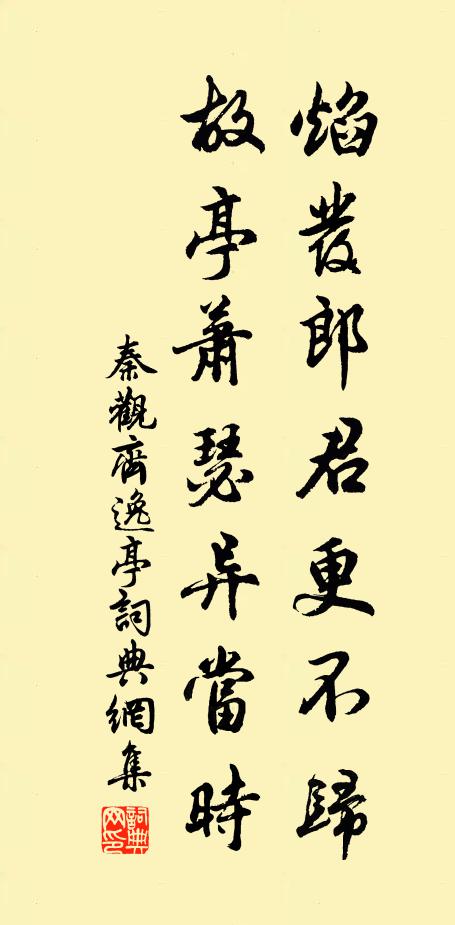 焰發郎君更不歸
故亭蕭瑟异當時
秦觀齊逸亭詞典網集
詞典網印